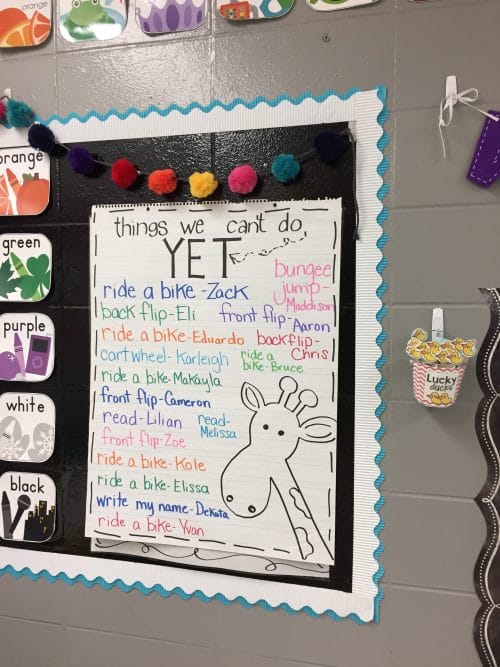 orange
orange
green
purple
white
black
things we can't do
YET
bungee
jump-
Maddison
ride a bike - Zack
back flip- Eli
front flip-
Aaron
ride a bike- Eduardo
backflip-
Chris
cartwheel- Karleigh
ride a
bike- Bruce
ride a bike- Makayla
front flip- Cameron
read- Lilian
read-
Melissa
front flip- Zoe
ride a bike- Kole
ride a bike- Elissa
write my name- Dekota
ride a bike- Yvan
Lucky
ducks